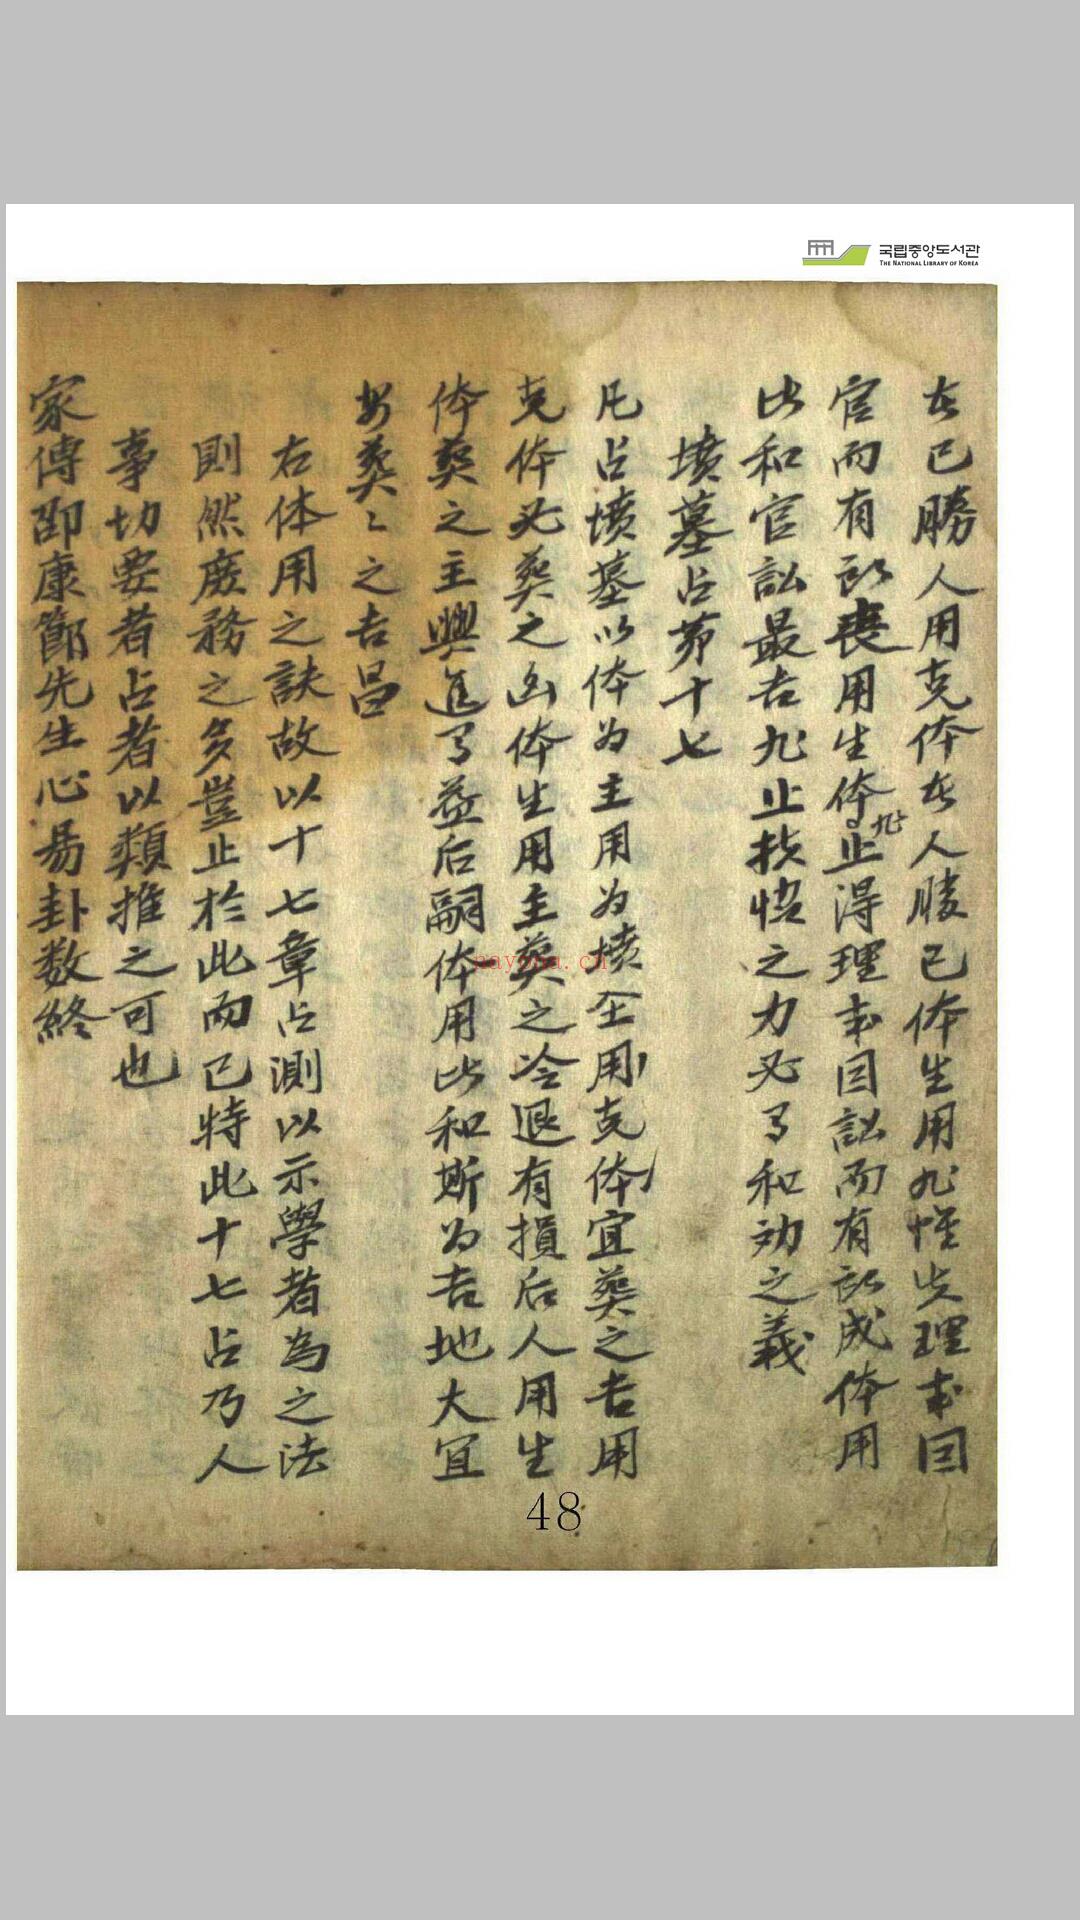 국립중앙도서관
THE NATIONAL LIBRARY OF KOREA
在已勝人用克体在人勝已体生用非惟失理或因
官而有所喪用生体非止得理或因訟而有所成体用
比和官訟最吉非止扶持之力必有和効之義
墳墓占第十七
凡占墳墓以体為主用為墳全用克体宜葬之吉用
克体必葬之凶体生用主葬之冷退有損后人用生
体葬之主興進有益后嗣体用比和斯為吉地大宜
葬〻之吉昌
右体用之訣故以十七章占測以示學者為之法
則然庶務之多豈止於此而已特此十七占乃人
事切要者占者以類推之可也
家傳邵康節先生心易卦数終
48
nayona.cn